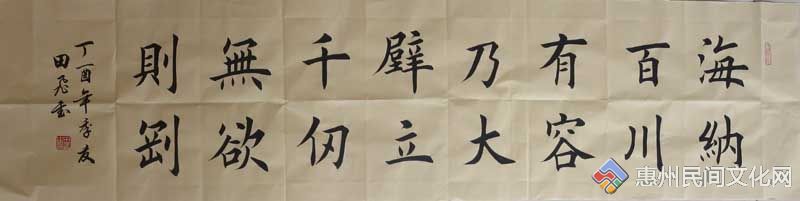 海納
百川
有容
乃大
壁立
千仞
無欲
則剛
丁酉年季夏
田飛書
惠州民间文化网